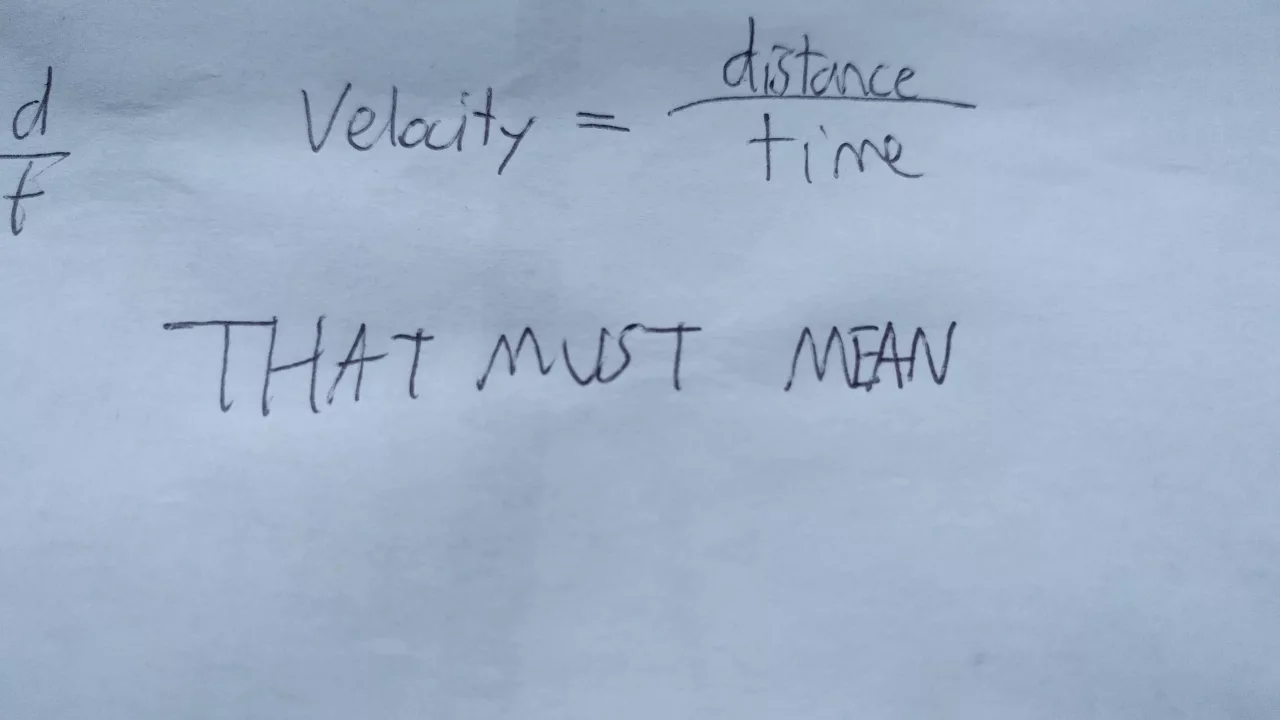 d
t
Velocity = distance
time
THAT MUST MEAN